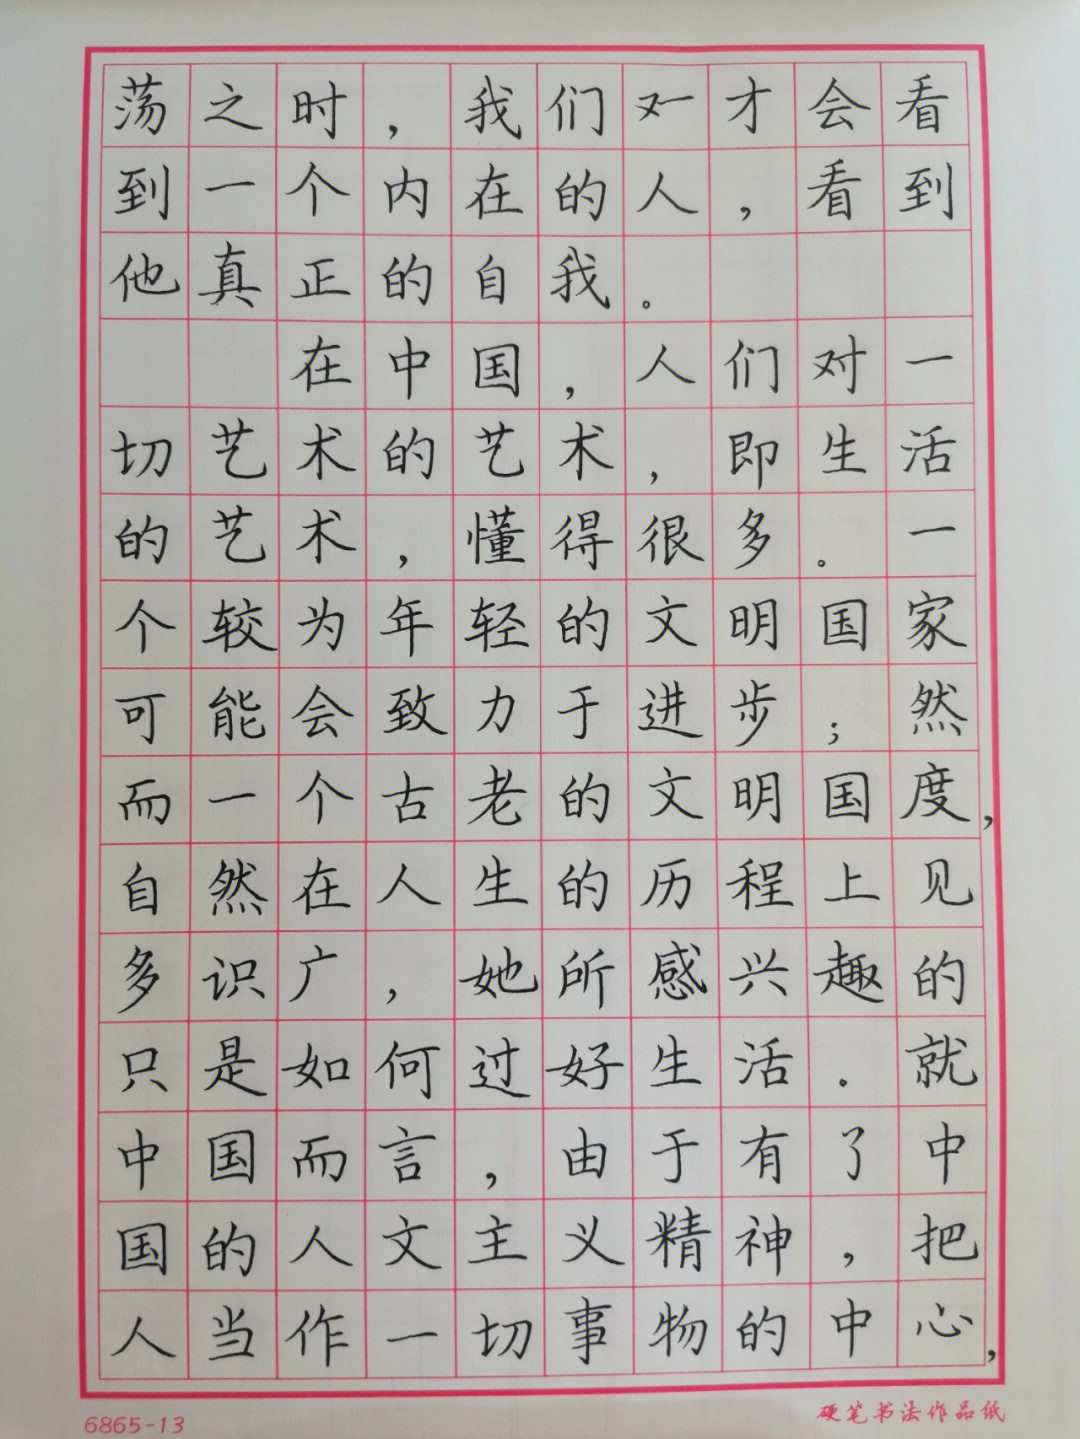 荡之时，我们才会看
到一个内在的人，看到
他真正的自我。
在中国，人们对一
切艺术的艺术，即生活
的艺术，懂得很多。一
个较为年轻的文明国家
可能会致力于进步；然
而一个古老的文明国度，
自然在人生的历程上见
多识广，她所感兴趣的
只是如何过好生活。就
中国而言，由于有了中
国的人文主义精神，把
人当作一切事物的中心，
6865-13
硬笔书法作品纸